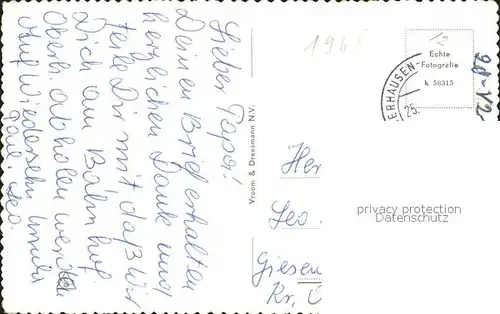 Lieber Papa!
Deinen Brief erhalten
herzlichen Dank und
teile Dir mit daß wir
Dich am Bahnhof
Oberh. abholen werden
Auf Wiedersehn
Leo.
Vroom & Dreesmann N.V.
196
Echte
-Fotografie
k 58315
ERHAUSEN-
25.
28-12
Her
Leo.
Giesen
Kr.
privacy protection
Datenschutz